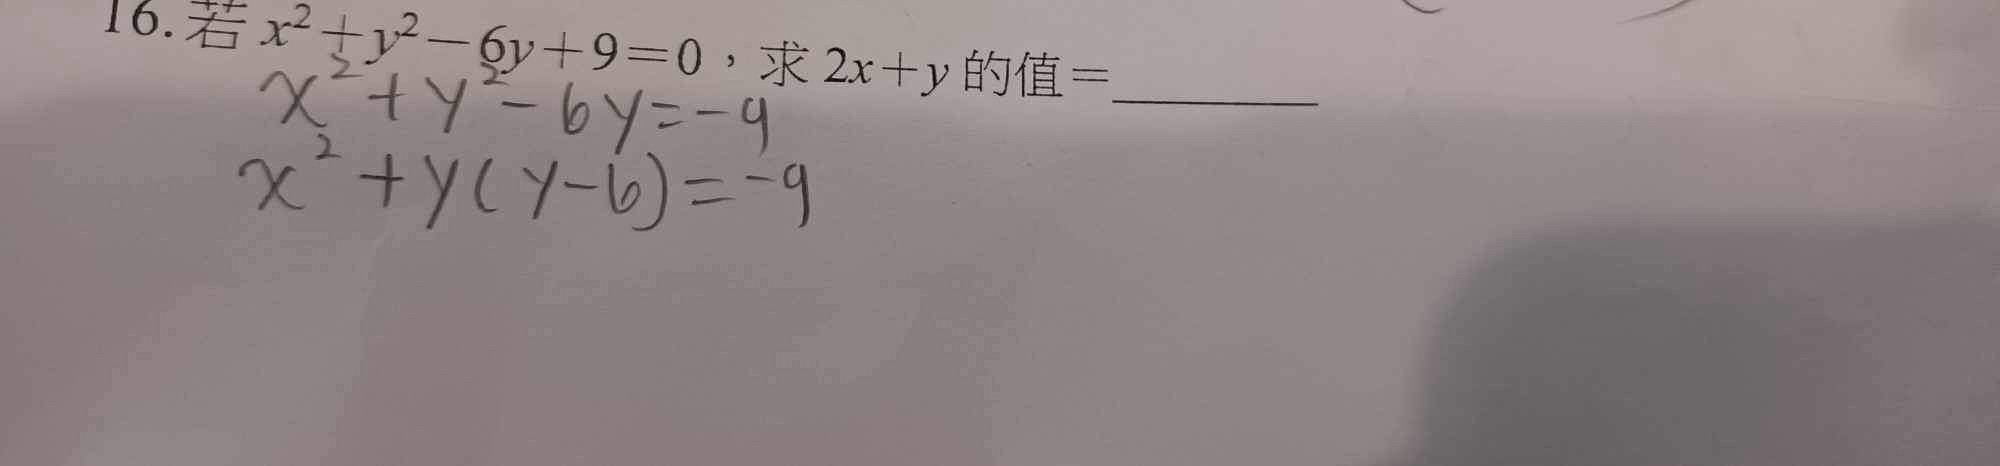 16. 若 x²+y²−6y+9=0，求 2x+y 的值=______
x²+y²-6y=-9
x²+y(y-6)=-9